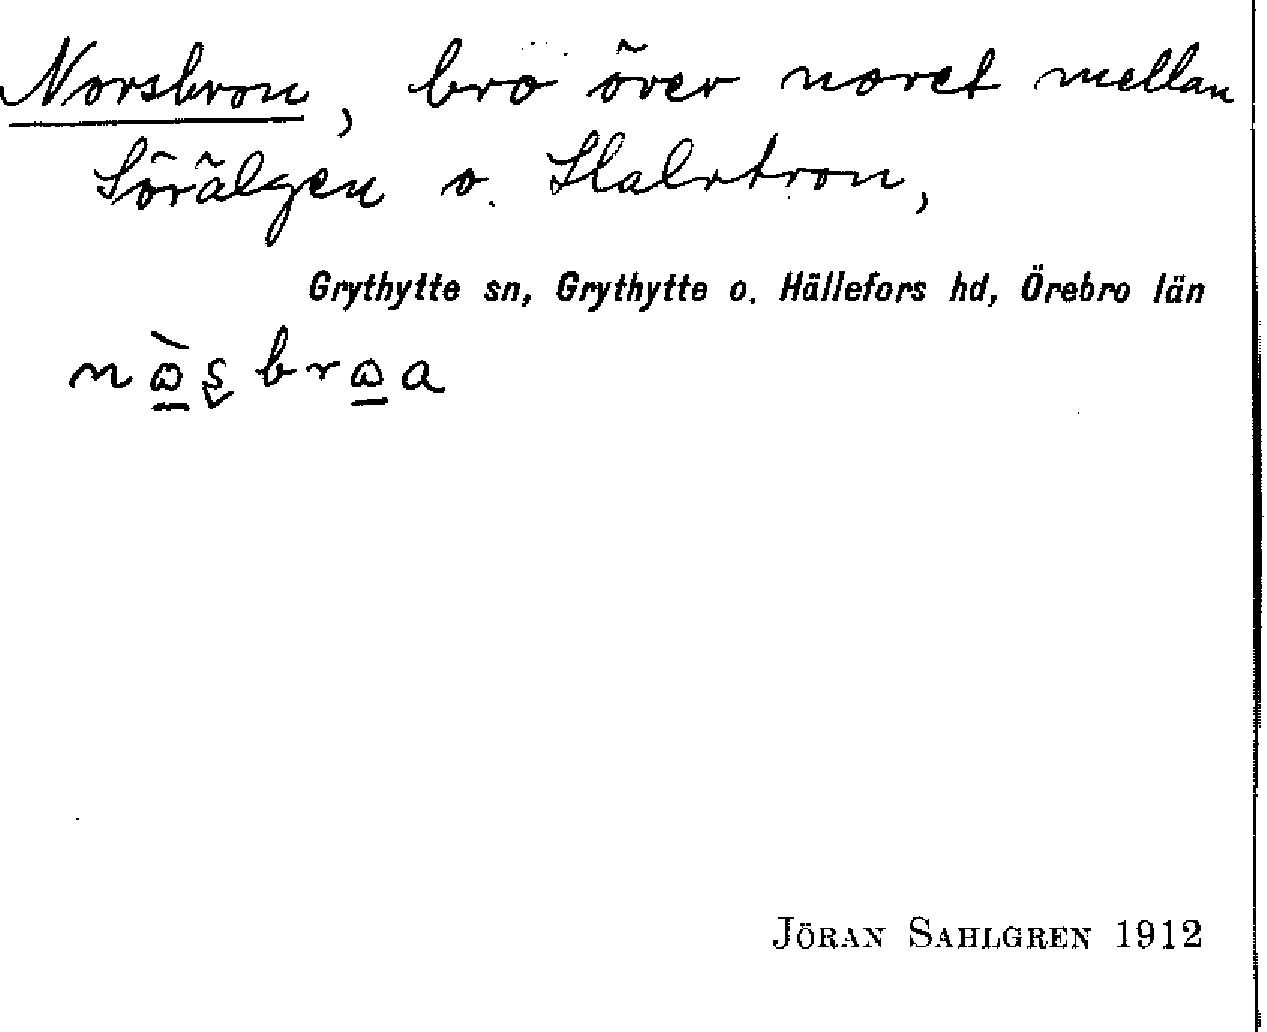 Norsbron, bro över noret mellan
Sörälgen o. Halvtron,
Grythytte sn, Grythytte o. Hällefors hd, Örebro län
JÖRAN SAHLGREN 1912